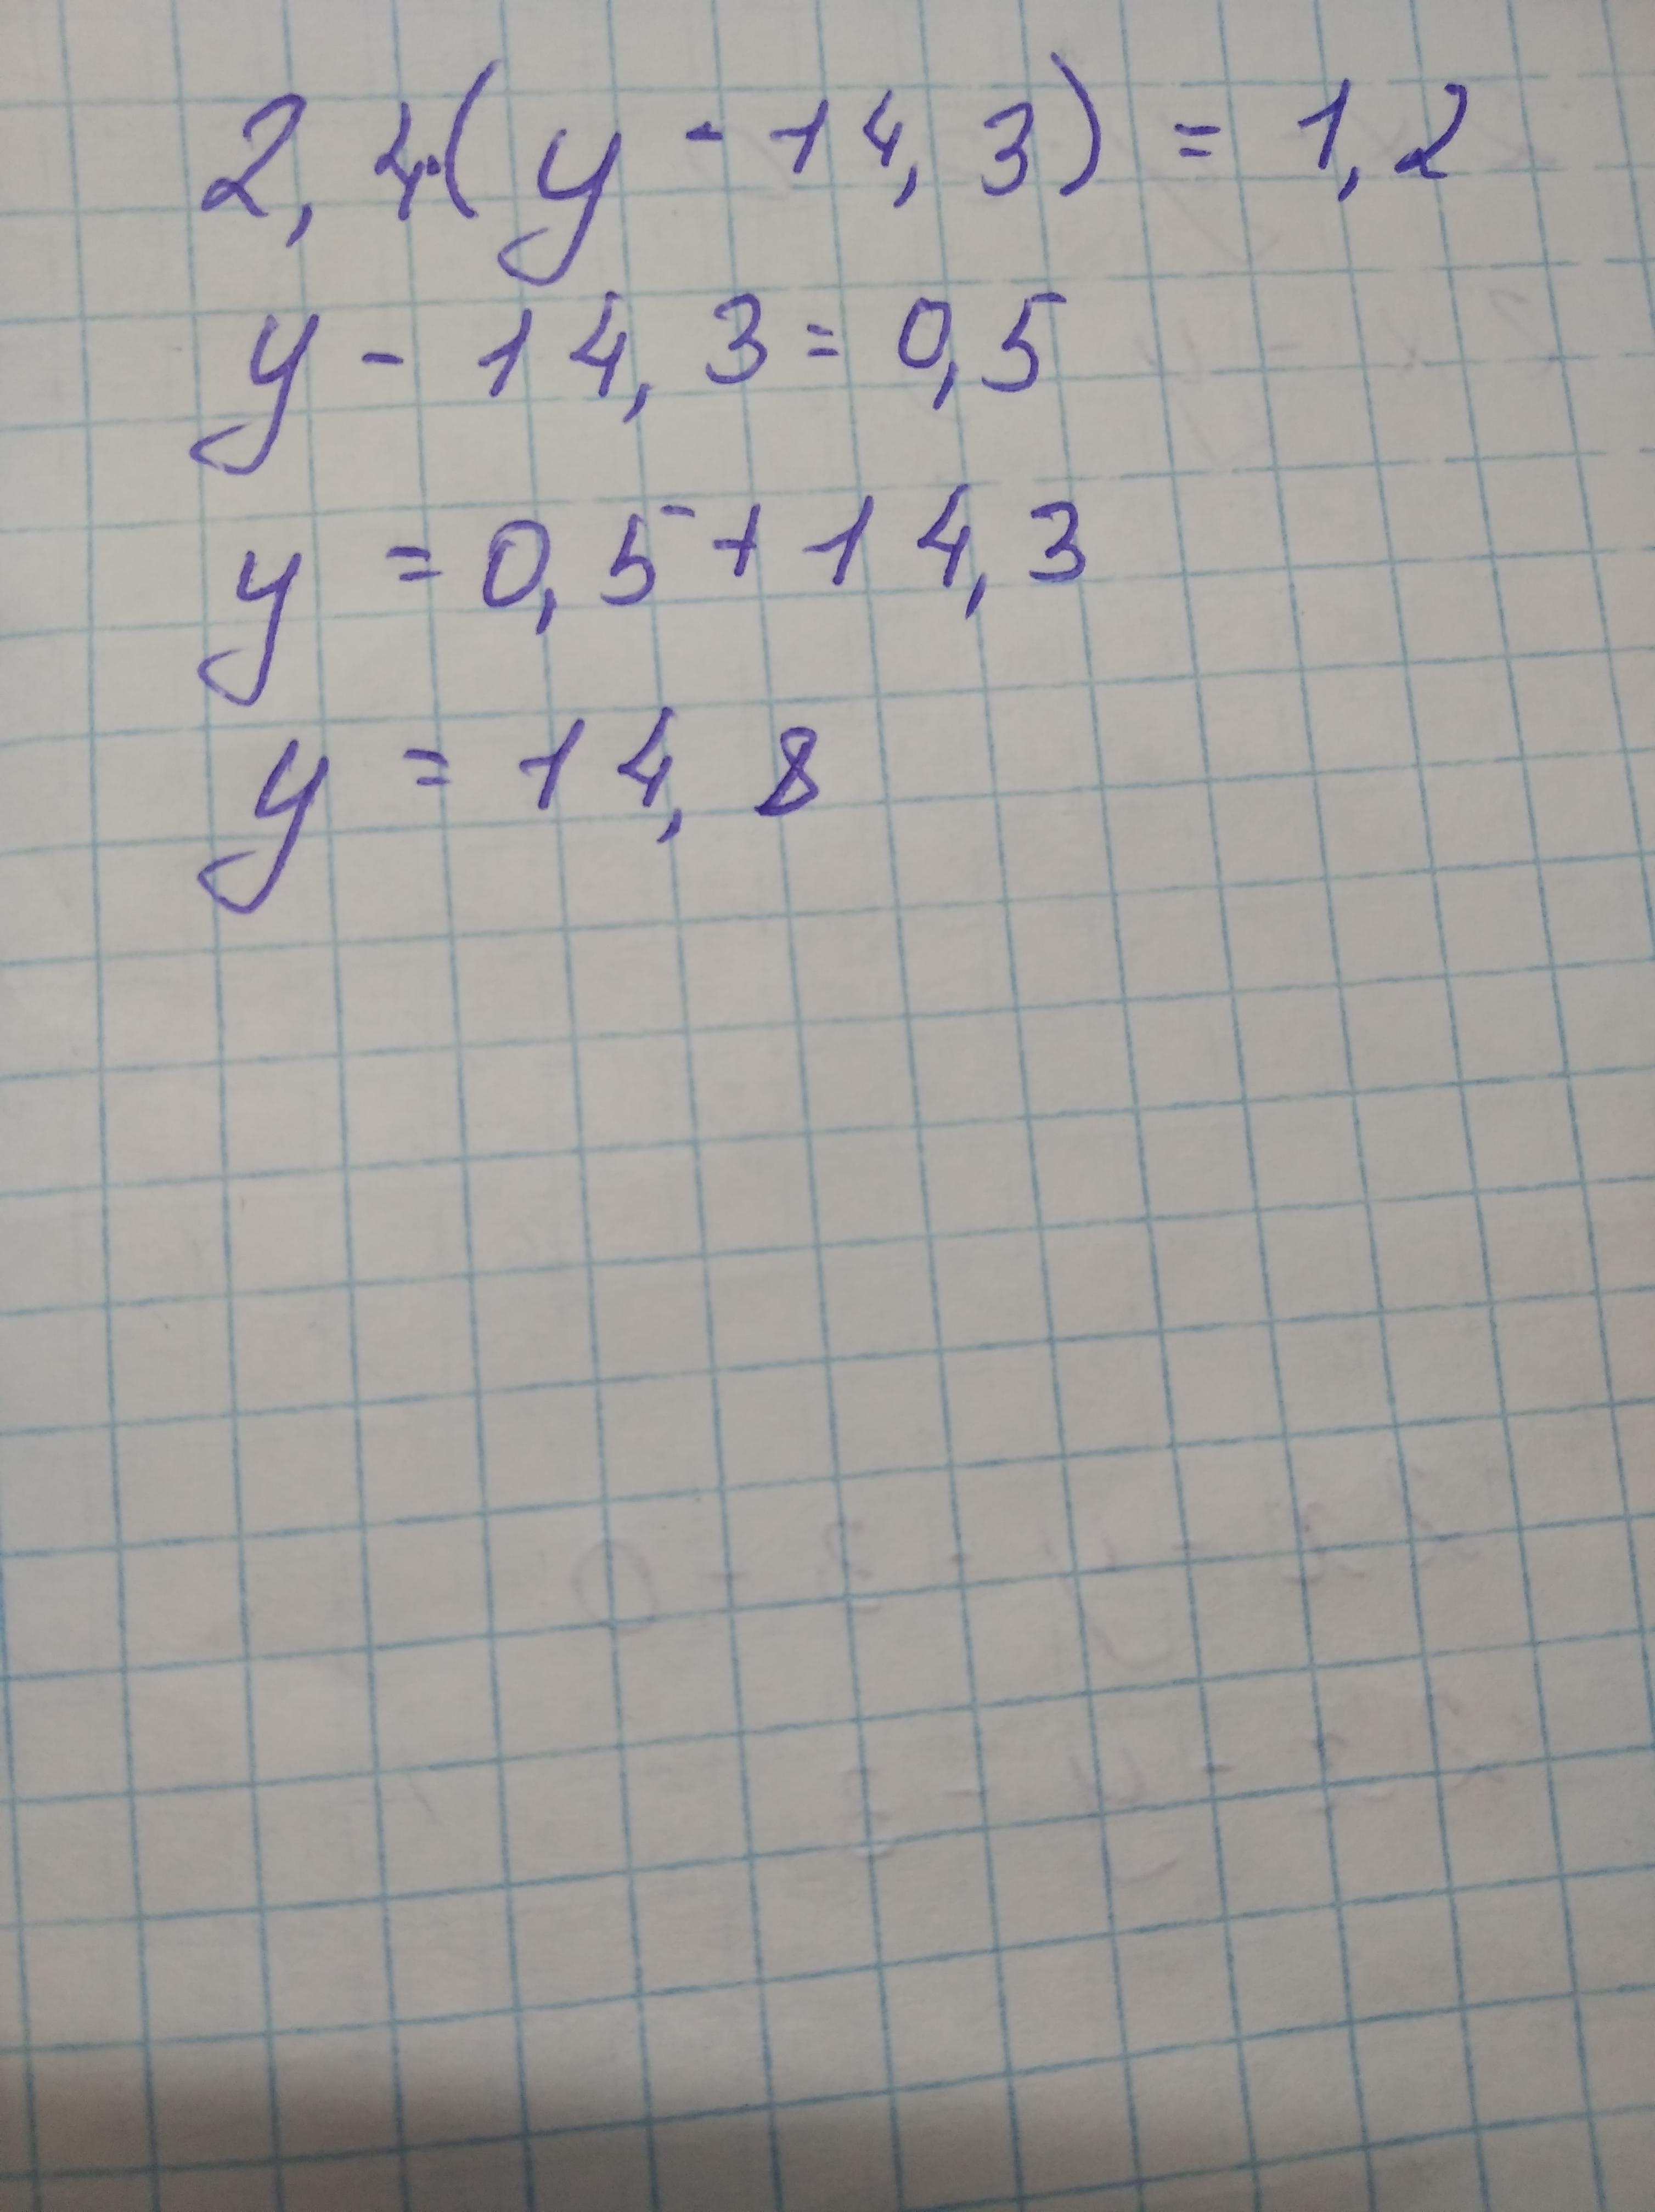 2,4(y - 14,3) = 1,2
y - 14,3 = 0,5
y = 0,5 + 14,3
y = 14,8